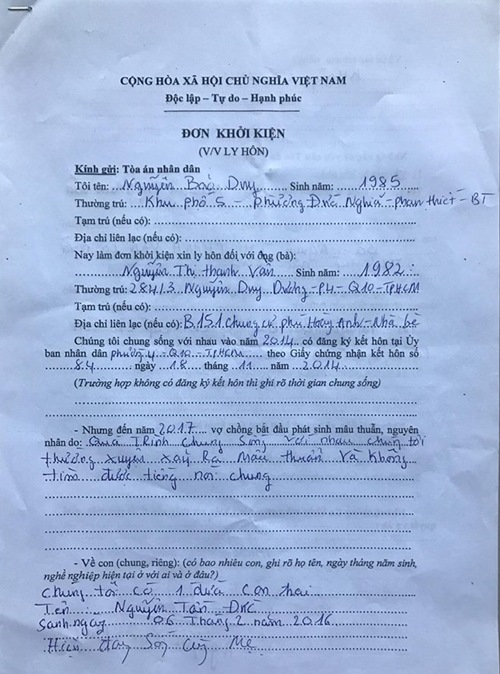 CỘNG HÒA XÃ HỘI CHỦ NGHĨA VIỆT NAM
Độc lập – Tự do – Hạnh phúc
ĐƠN KHỞI KIỆN
(V/V LY HÔN)
Kính gửi: Tòa án nhân dân
Tôi tên: Nguyễn Bảo Duy Sinh năm: 1985
Thường trú: Khu phố 5 - Phường Đức Nghĩa - phan thiết - BT
Tạm trú (nếu có):
Địa chỉ liên lạc (nếu có):
Nay làm đơn khởi kiện xin ly hôn đối với ông (bà):
Nguyễn Thị thanh Vân Sinh năm: 1982
Thường trú: 284/3 Nguyễn Duy Dương - P4 - Q10 - TPHCM
Tạm trú (nếu có):
Địa chỉ liên lạc (nếu có): B151 chung cư phú Hoàng Anh - Nhà bè
Chúng tôi chung sống với nhau vào năm 2014 có đăng ký kết hôn tại Ủy
ban nhân dân phường 4 - Q10 - TPHCM theo Giấy chứng nhận kết hôn số
84 ngày 18 tháng 11 năm 2014
(Trường hợp không có đăng ký kết hôn thì ghi rõ thời gian chung sống)
- Nhưng đến năm 2017 vợ chồng bắt đầu phát sinh mâu thuẫn, nguyên
nhân do: Quá TRình chung Sống với nhau chúng tôi
thường xuyên xảy Ra Mâu thuẫn Và Không
tìm được tiếng nói chung
- Về con (chung, riêng): (có bao nhiêu con, ghi rõ họ tên, ngày tháng năm sinh,
nghề nghiệp hiện tại ở với ai và ở đâu?)
Chúng tôi có 1 đứa con trai
Tên Nguyễn Tấn Đức
Sanh ngày 06 Tháng 2 năm 2016
Hiện đang Sống cùng Mẹ